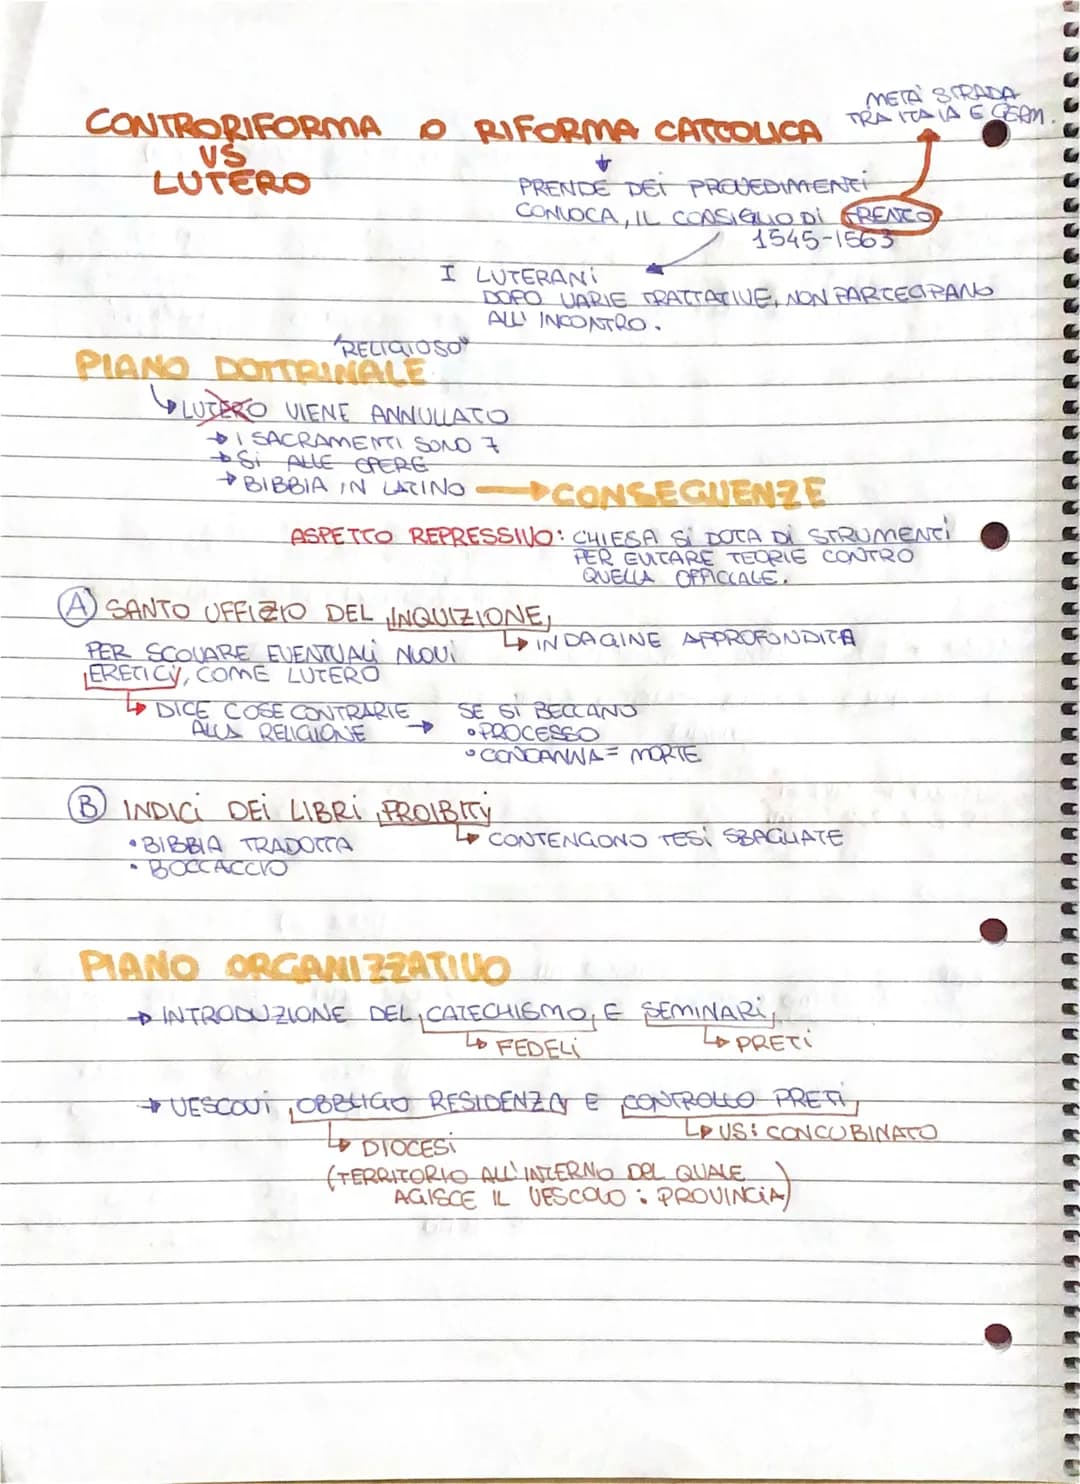 META' STRADA
TRA ITALIA E GERM.
CONTRORIFORMA O RIFORMA CATTOLICA
VS
LUTERO
PRENDE DEI PROVEDIMENTI
CONVOCA, IL CONSIGLIO DI TRENTO
1545-1563
I LUTERANI
DOPO VARIE TRATTATIVE, NON PARTECIPANO
ALL' INCONTRO.
"RELIGIOSO"
PIANO DOTTRINALE
↳ LUTERO VIENE ANNULLATO
→ I SACRAMENTI SONO 7
→ SI ALLE OPERE
→ BIBBIA IN LATINO → CONSEGUENZE
ASPETTO REPRESSIVO: CHIESA SI DOTA DI STRUMENTI
PER EVITARE TEORIE CONTRO
QUELLA OFFICIALE.
A SANTO UFFIZIO DEL INQUIZIONE
↳ INDAGINE APPROFONDITA
PER SCOVARE EVENTUALI NUOVI
ERETICI, COME LUTERO
↳ DICE COSE CONTRARIE → SE SI BECCANO
ALLA RELIGIONE • PROCESSO
• CONDANNA = MORTE
B INDICI DEI LIBRI PROIBITI
• BIBBIA TRADOTTA ↳ CONTENGONO TESI SBAGLIATE
• BOCCACCIO
PIANO ORGANIZZATIVO
→ INTRODUZIONE DEL CATECHISMO E SEMINARI
↳ FEDELI ↳ PRETI
→ VESCOVI OBBLIGO RESIDENZA E CONTROLLO PRETI
↳ VS: CONCUBINATO
↳ DIOCESI
(TERRITORIO ALL' INTERNO DEL QUALE
AGISCE IL VESCOVO: PROVINCIA)